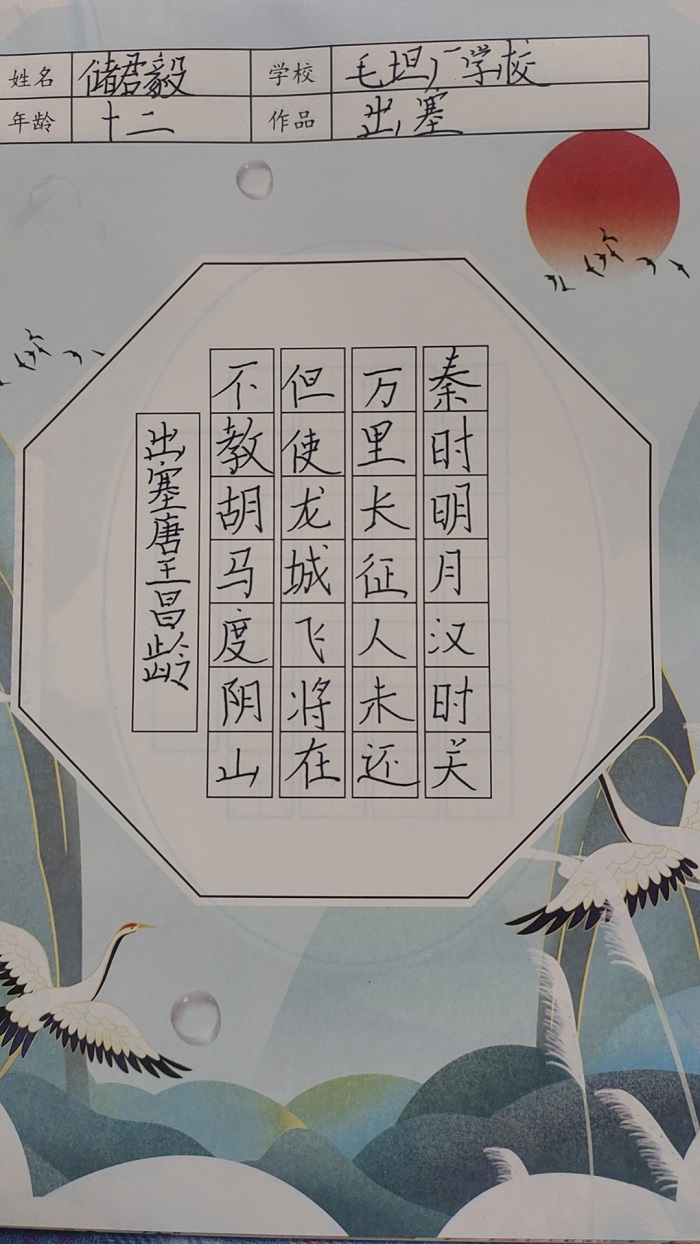 姓名 储君毅 学校 毛坦厂学校
年龄 十二 作品 出塞
秦时明月汉时关
万里长征人未还
但使龙城飞将在
不教胡马度阴山
出塞唐王昌龄